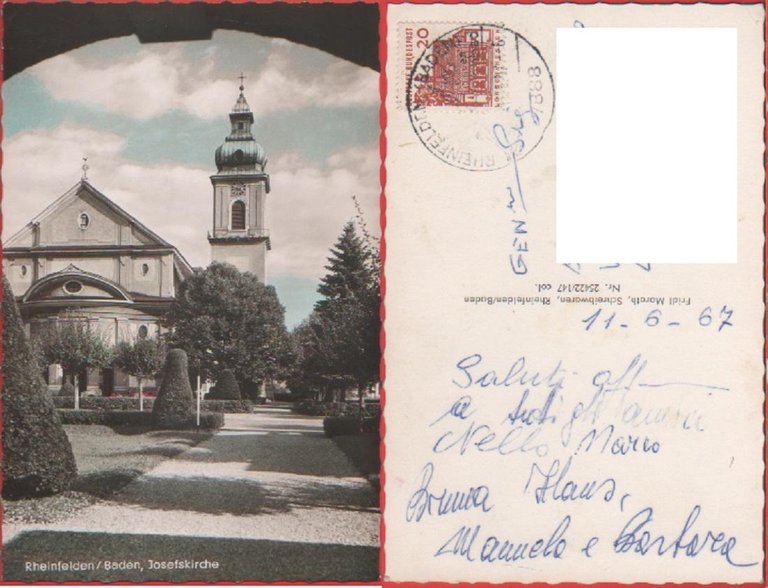 Rheinfelden/Baden, Josefskirche
20
DEUTSCHE BUNDESPOST
RHEINFELDEN (BADEN)
7888
Fridl Marath, Schreibwaren, Rheinfelden/Baden
Nr. 25422/147 col.
11-6-67
Saluti aff
a tutti gli amici
Nello Marco
Bruna Hans,
Manuela e Barbara